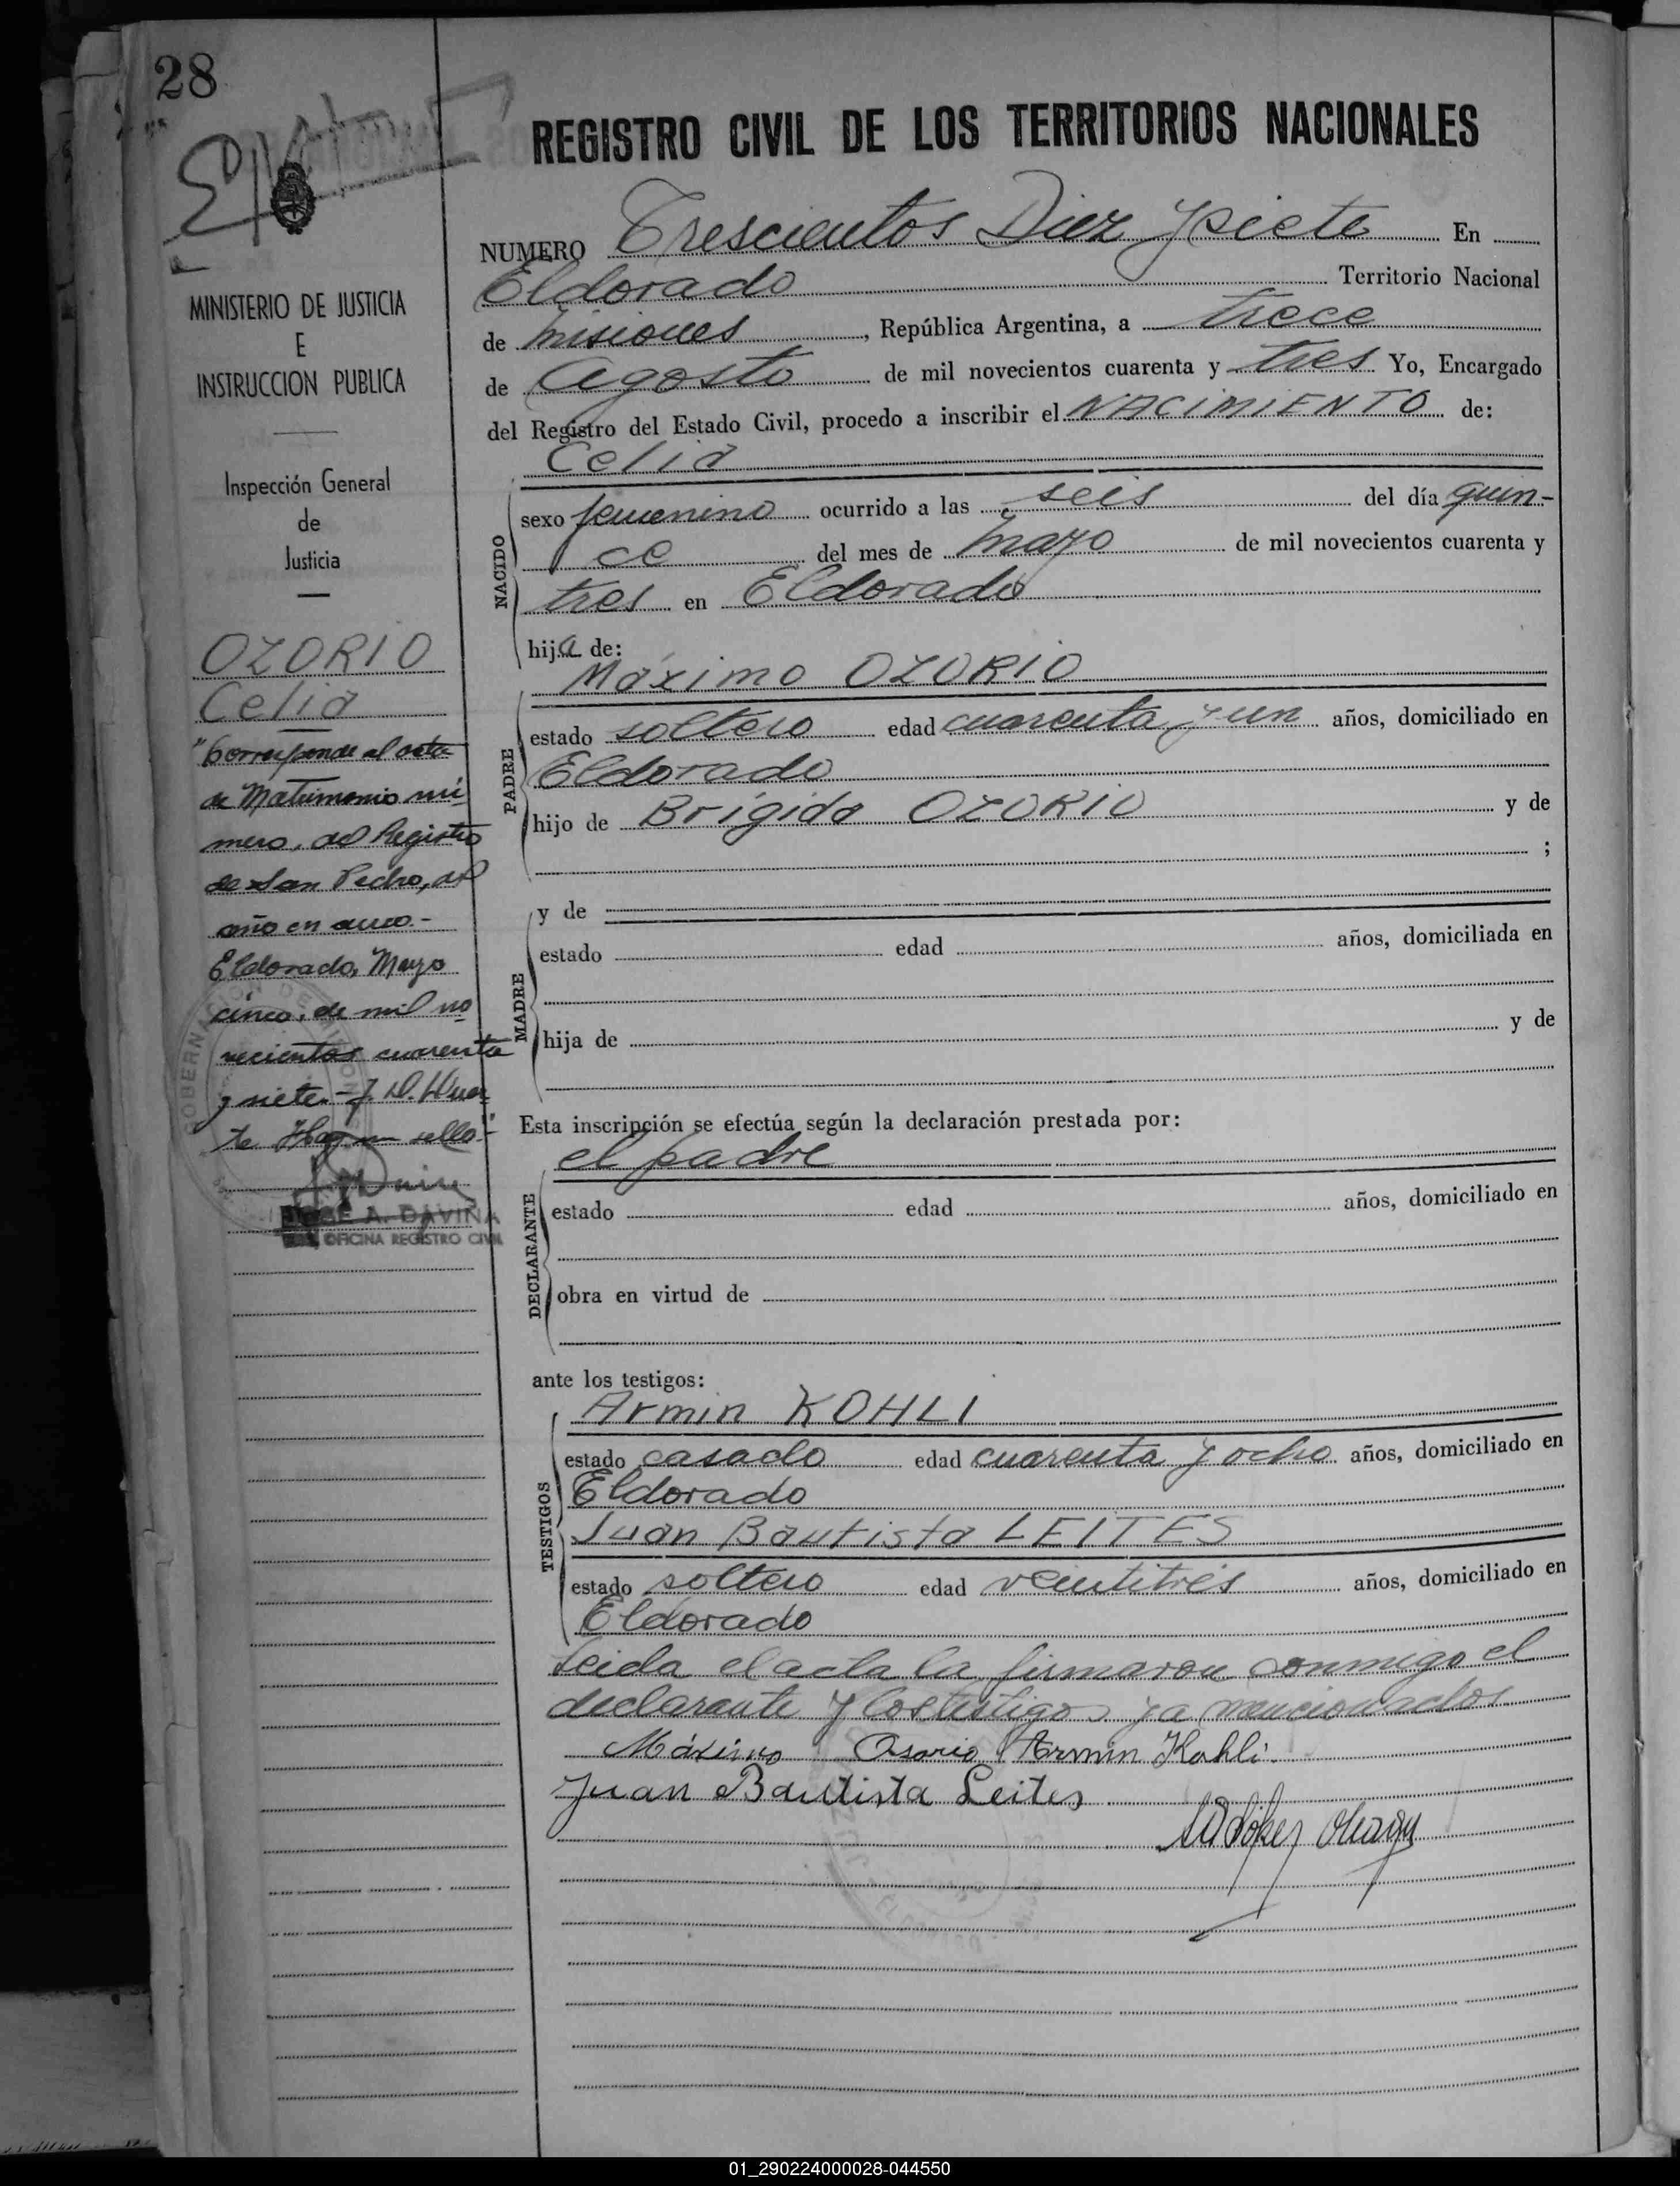 28
MINISTERIO DE JUSTICIA
E
INSTRUCCION PUBLICA
Inspección General
de
Justicia
OZORIO
Celia
"Corresponde al acta
de Matrimonio nú
mero, del Registro
de San Pedro, del
año en curso.-
Eldorado, Mayo
cinco, de mil no
vecientos cuarenta
y siete.- J. D. Duar
te Hay un sello".-
JOSE A. DAVIÑA
OFICINA REGISTRO CIVIL
REGISTRO CIVIL DE LOS TERRITORIOS NACIONALES
NUMERO Trescientos Diez y siete En
Eldorado Territorio Nacional
de Misiones, República Argentina, a trece
de Agosto de mil novecientos cuarenta y tres Yo, Encargado
del Registro del Estado Civil, procedo a inscribir el NACIMIENTO de:
Celia
NACIDO
sexo femenino ocurrido a las seis del día quin-
ce del mes de mayo de mil novecientos cuarenta y
tres en Eldorado
hija de:
Máximo OZORIO
PADRE
estado soltero edad cuarenta y un años, domiciliado en
Eldorado
hijo de Brígida OZORIO y de
;
y de
MADRE
estado edad años, domiciliada en
hija de y de
Esta inscripción se efectúa según la declaración prestada por:
el padre
DECLARANTE
estado edad años, domiciliado en
obra en virtud de
ante los testigos:
Armin KOHLI
TESTIGOS
estado casado edad cuarenta y ocho años, domiciliado en
Eldorado
Juan Bautista LEITES
estado soltero edad veintitrés años, domiciliado en
Eldorado
Leida el acta la firmaron conmigo el
declarante y los testigos ya mencionados
Máximo Osorio Armin Kohli.
Juan Bautista Leites
01_290224000028-044550